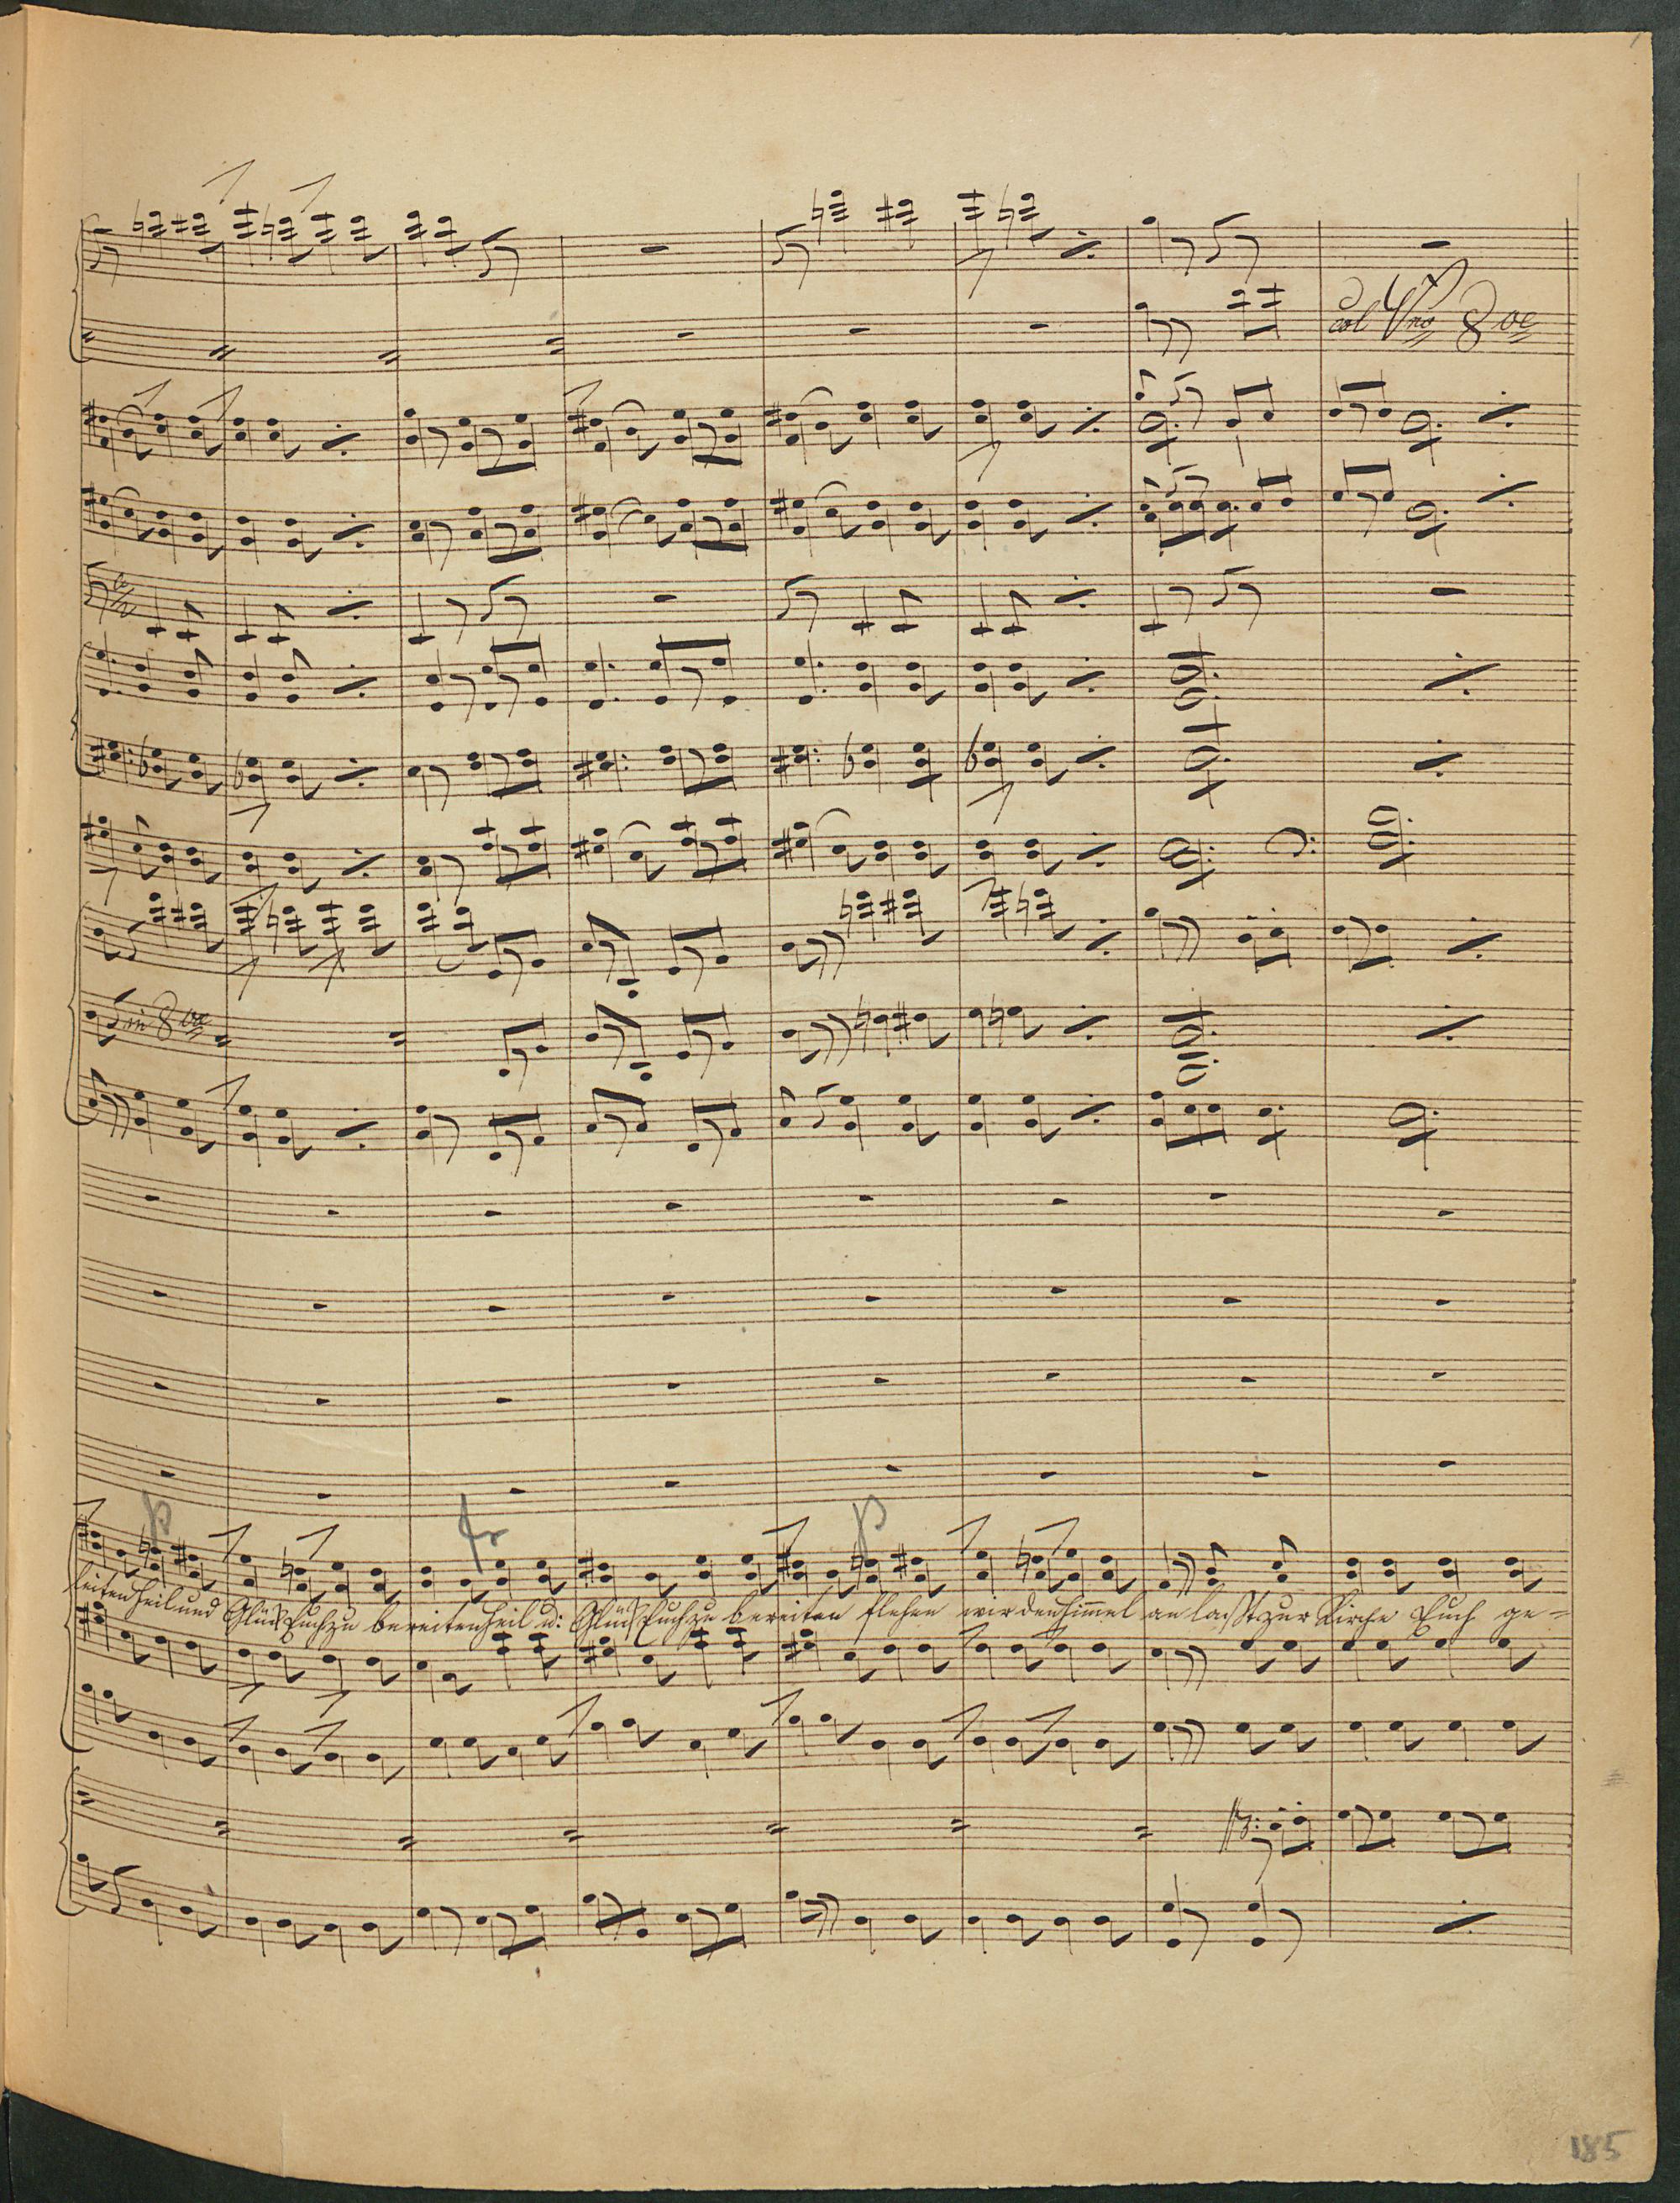 col Vno 8ve
in 8ve
p
fr
p
leiten Heil und Glück Euch zu bereiten Heil u: Glück Euch zu bereiten flehen wir den Him̅el an laßt zur Kirche Euch ge-
185